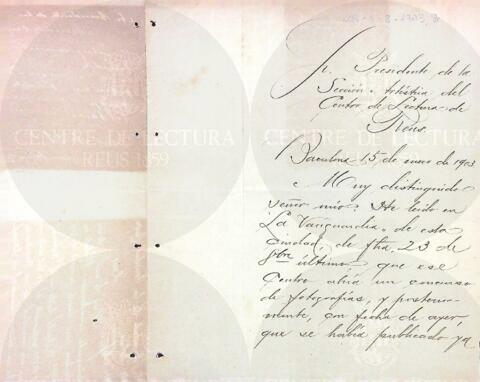 Sr. Presidente de la
Sección Artística del
Centro de Lectura de
Reus.
Barcelona 15 de enero de 1903
Muy distinguido
señor mio: He leido en
La Vanguardia, de esta
ciudad, de fha, 23 de
último que ese
Centro abría un concurso
de fotografías, y posterior-
mente, con fecha de ayer,
que se había publicado ya
CENTRE DE LECTURA
REUS 1859
CENTRE DE LECTURA
REUS 1859